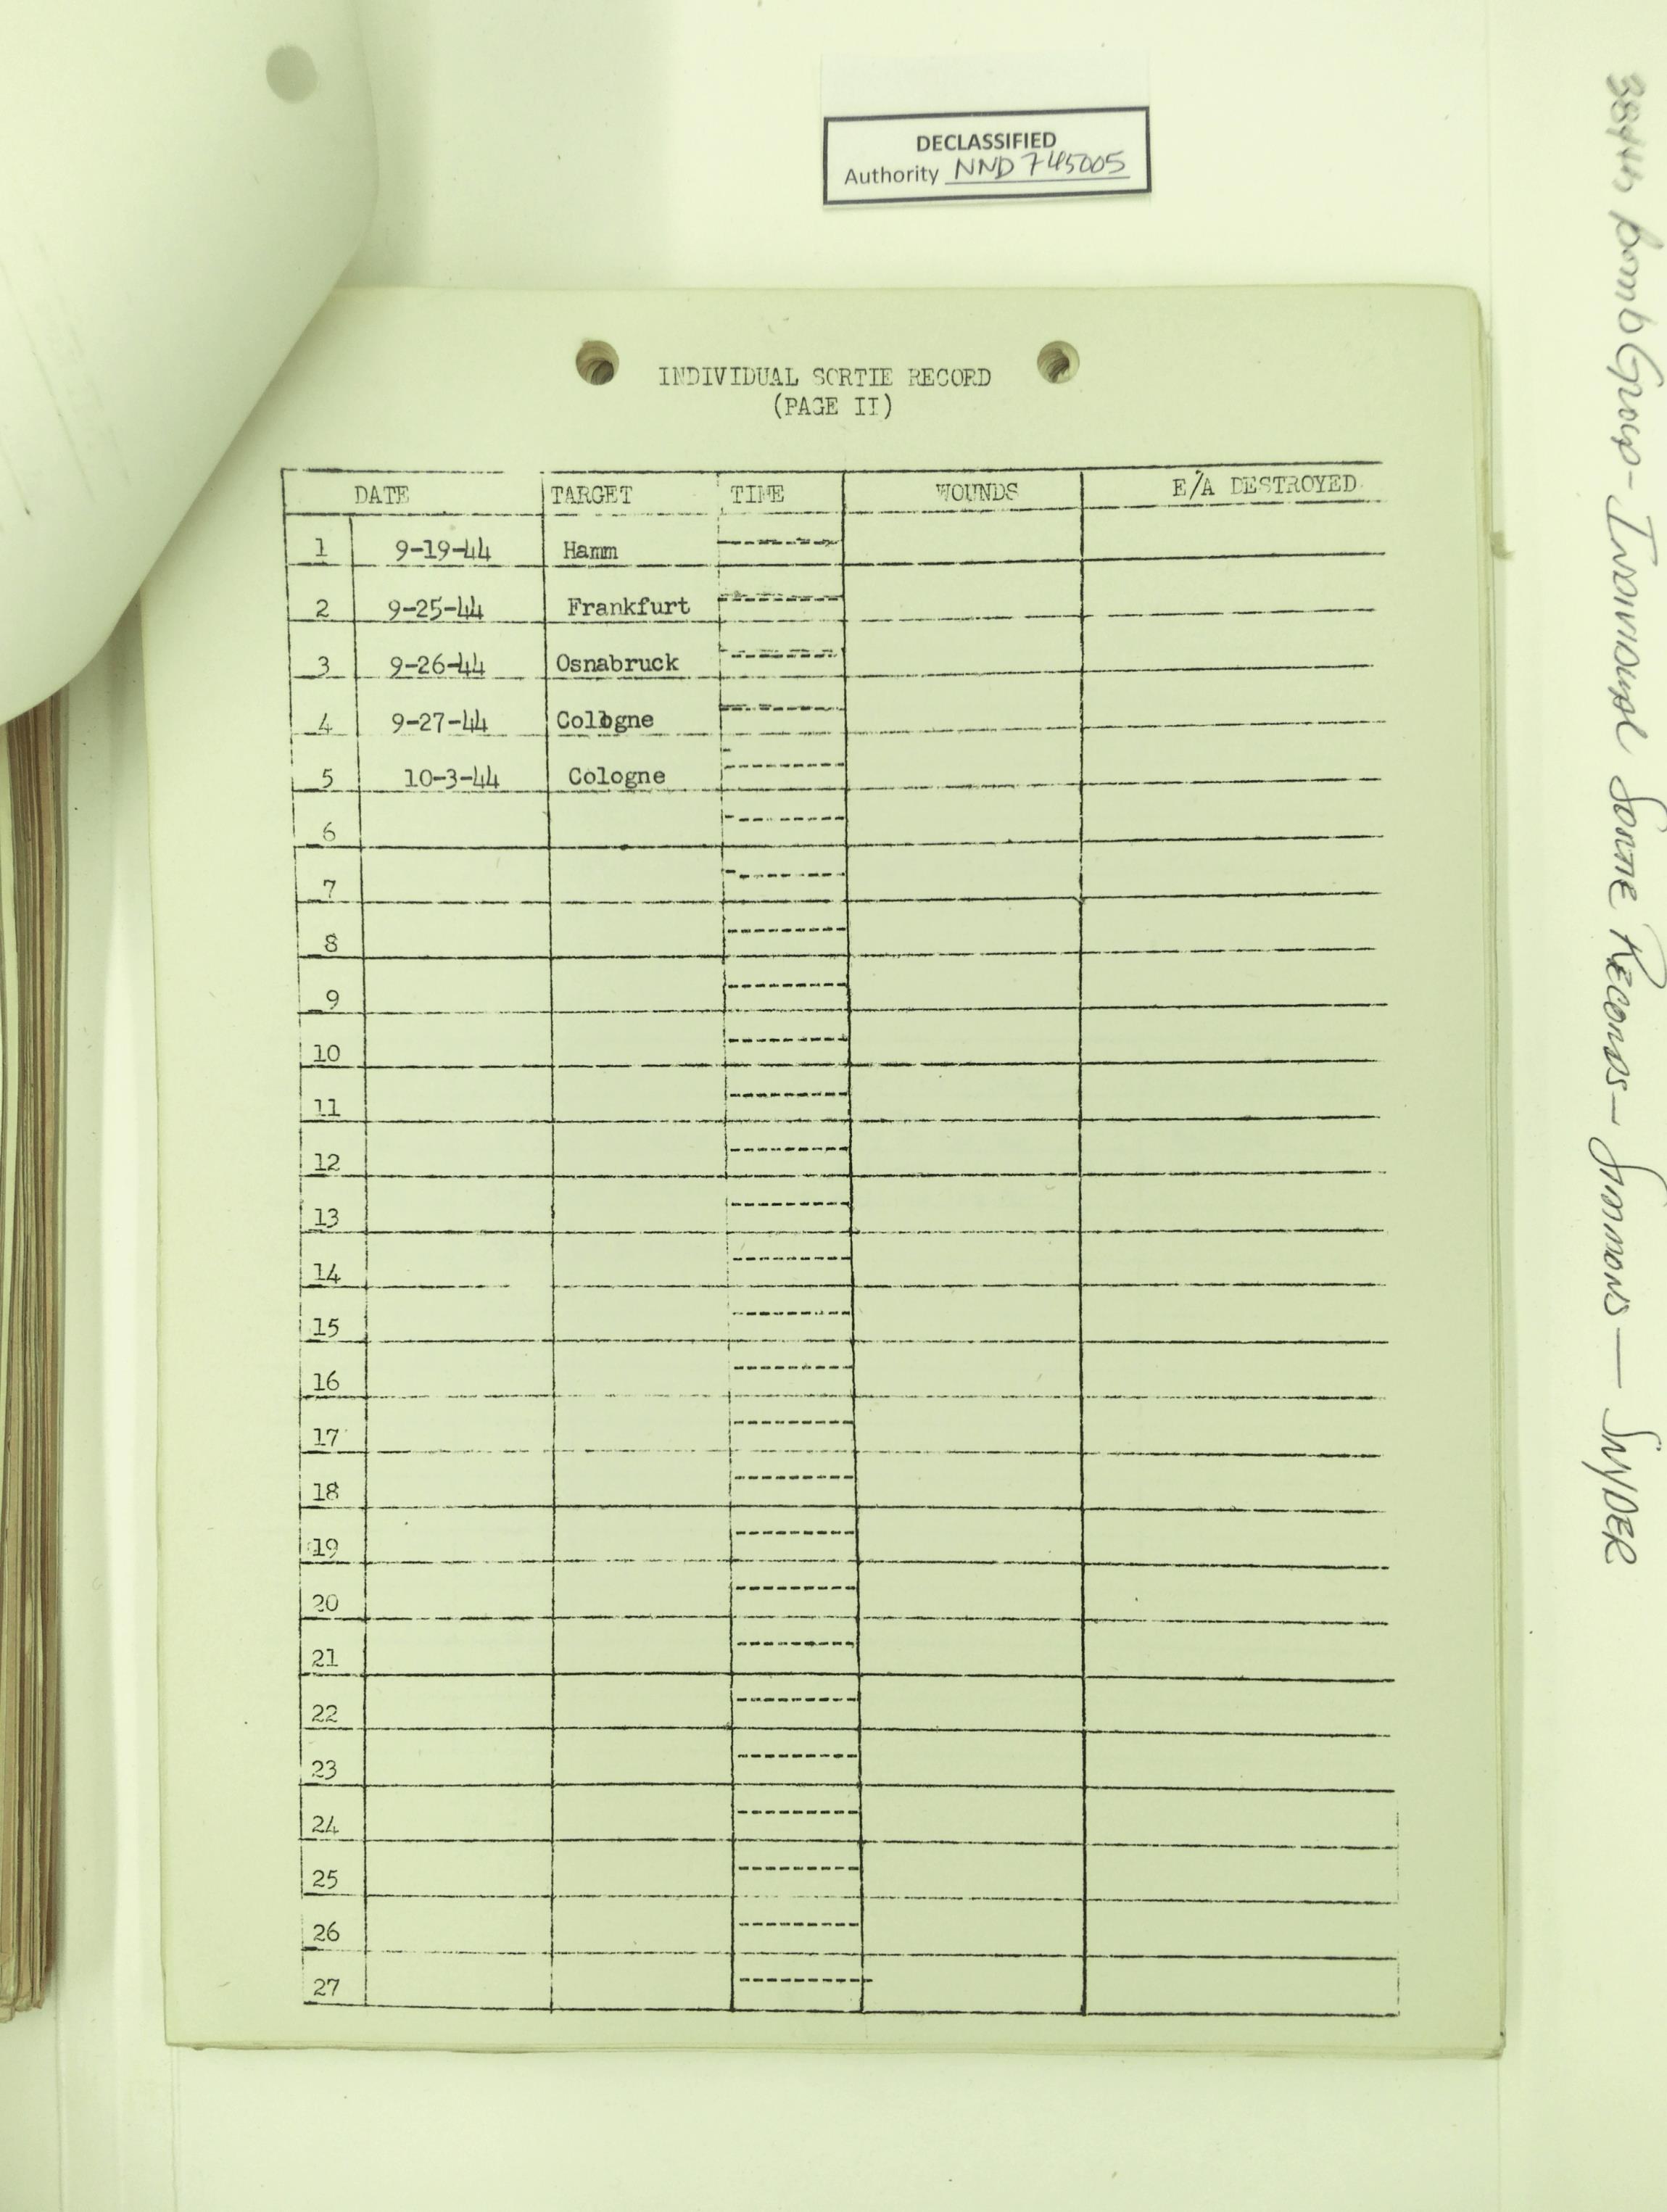 DECLASSIFIED
Authority NND 745005
INDIVIDUAL SORTIE RECORD
(PAGE II)
DATE TARGET TIME WOUNDS E/A DESTROYED
1 9-19-44 Hamm
2 9-25-44 Frankfurt
3 9-26-44 Osnabruck
4 9-27-44 Cologne
5 10-3-44 Cologne
6
7
8
9
10
11
12
13
14
15
16
17
18
19
20
21
22
23
24
25
26
27
384th Bomb Group - Individual Sortie Records - Simmons - Snyder